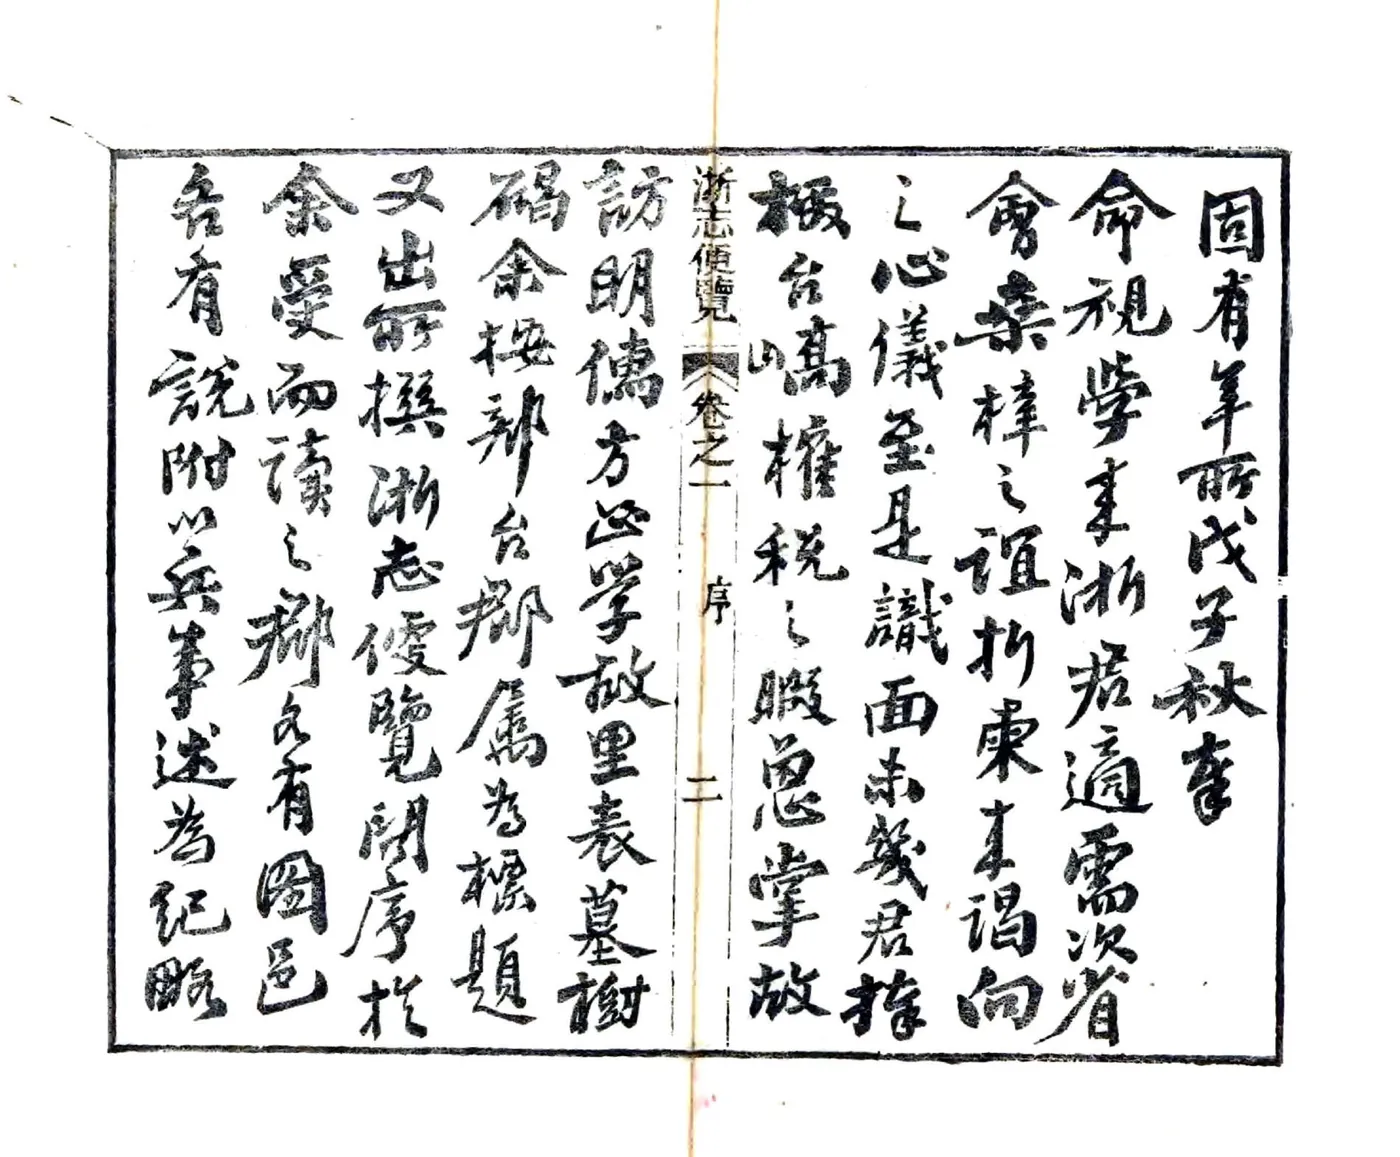 固有年所戊子秋奉
命視學来浙君適需次省
會桑梓之誼折柬来謁向
之心儀至是識面未幾君捧
檄台嶠榷稅之暇蒐掌故
浙志便覽 卷之一 序 二
訪明儒方正學故里表墓樹
碣余按部台郡屬為標題
又出所撰浙志便覽問序於
余受而讀之郡各有圖邑
各有說附以兵事述為紀略